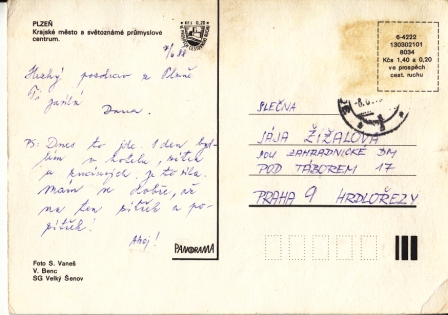 PLZEŇ
Krajské město a světoznámé průmyslové
centrum.
Kčs 0,20
Hezký pozdrav z Plzně
Ti zasílá
Dana.
PS: Dnes to jde. 1 den byd-
lím v hotelu, pátek
u
Mám se dobře, až
na ten pátek a po-
Ahoj!
Foto S. Vaneš
V. Benc
SG Velký Šenov
PANORAMA
6-4222
130302101
8034
Kčs 1,40 a 0,20
ve prospěch
cest. ruchu
SLEČNA
JÁJA ŽIŽALOVÁ
SOU ZAHRADNICKÉ DM
POD TÁBOREM 17
PRAHA 9 HRDLOŘEZY